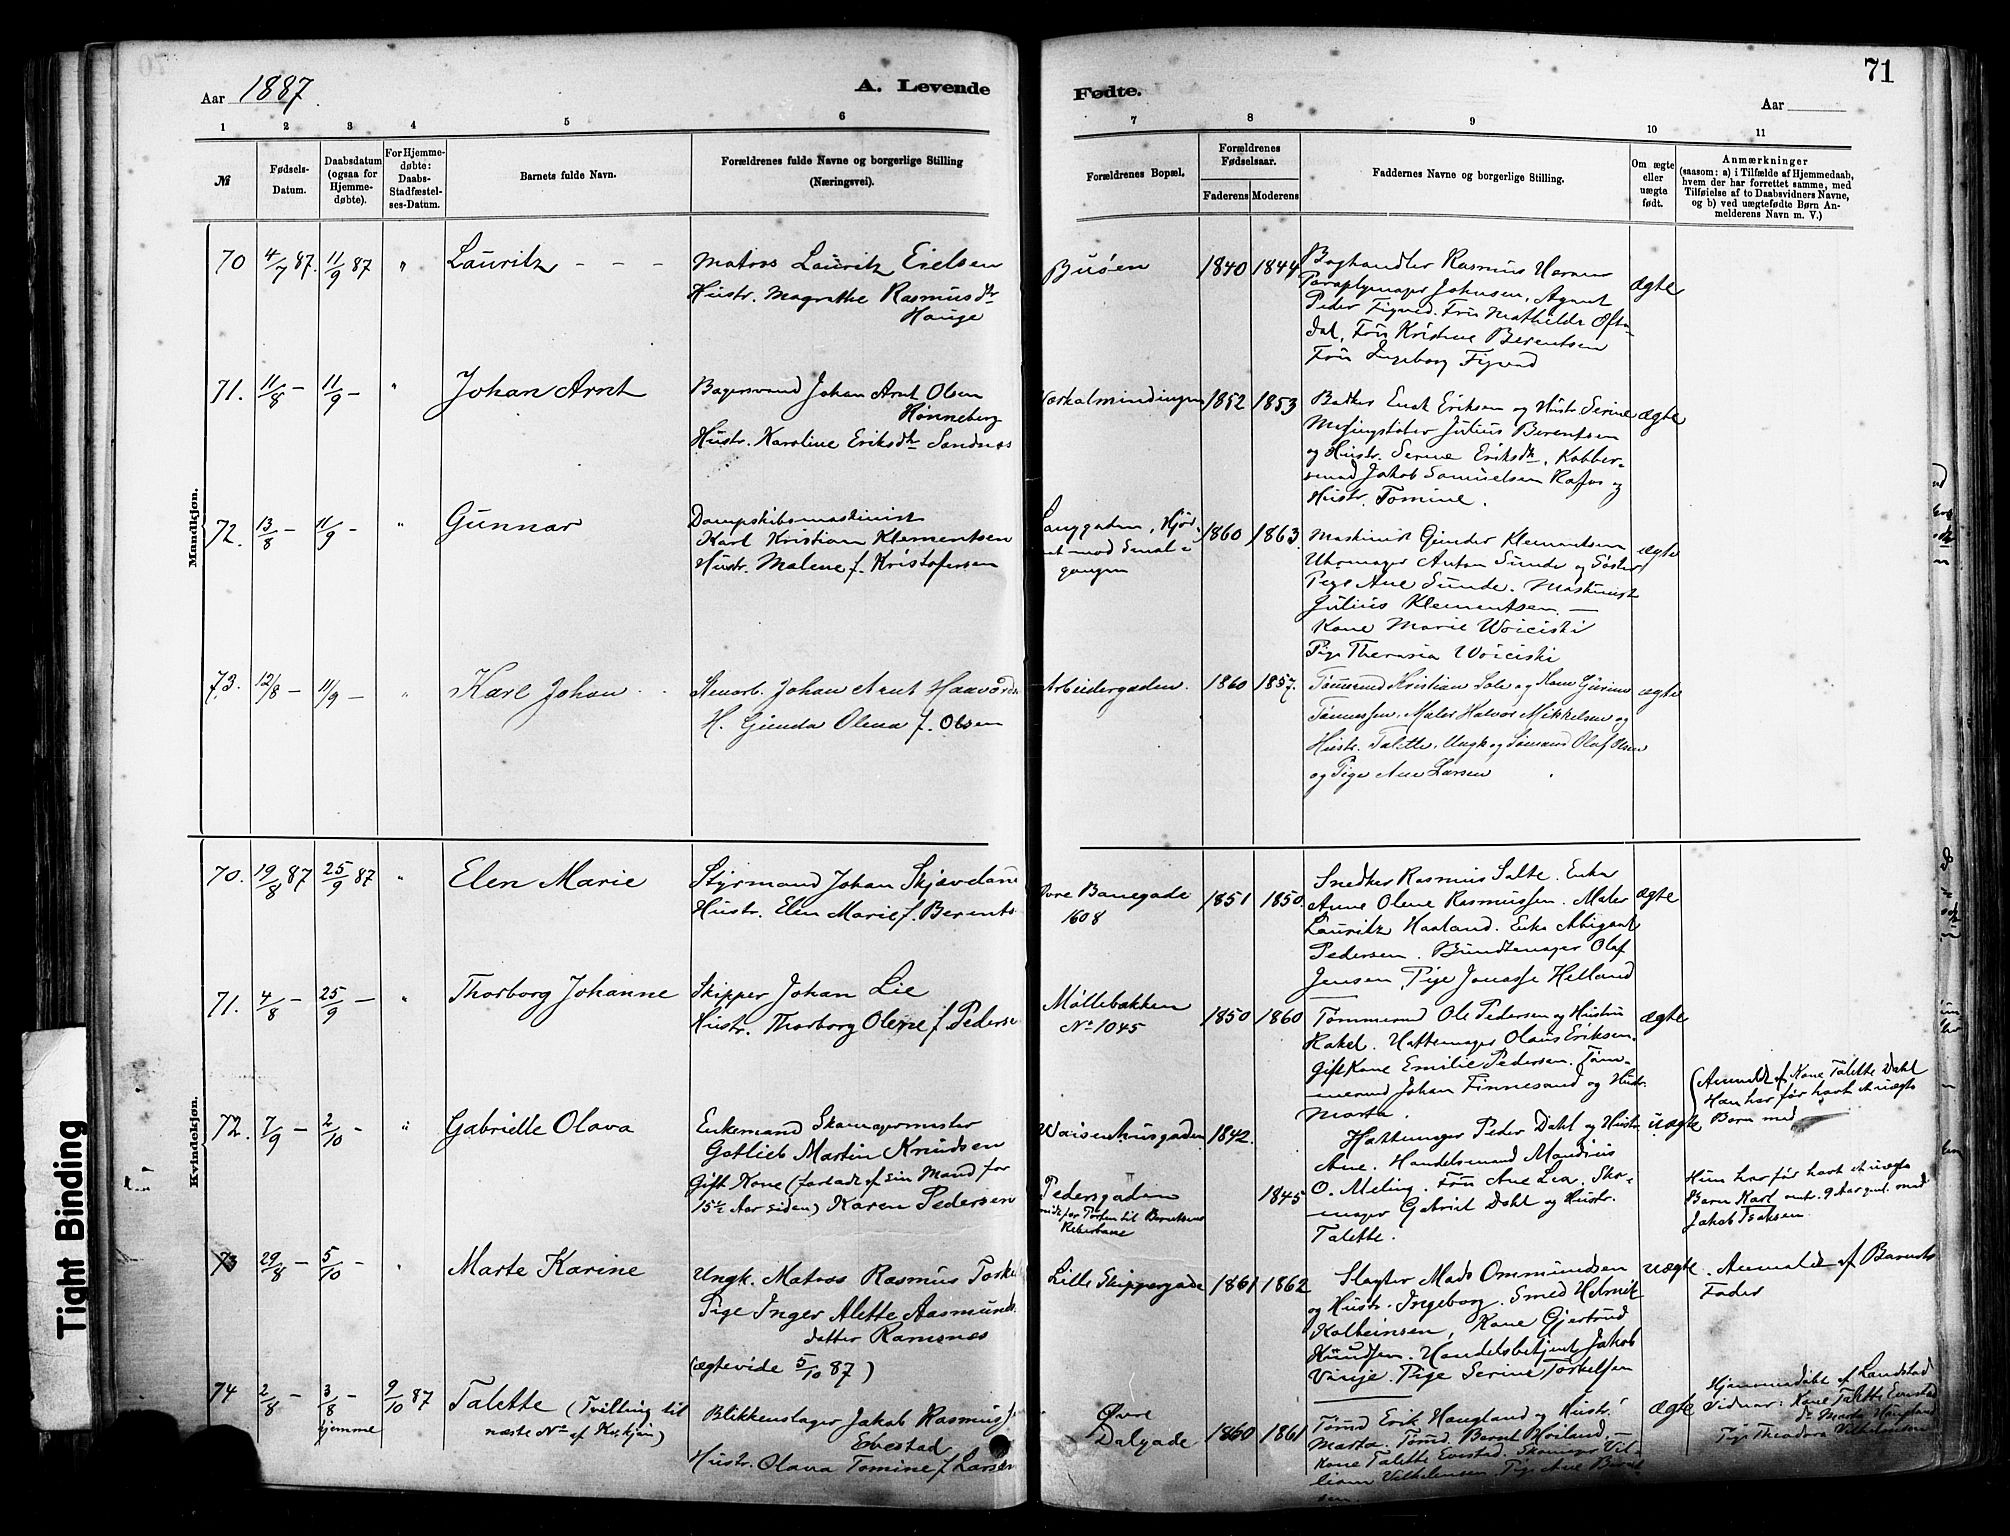 Aar 1887.
A. Levende
Fødte.
71
Aar
1 2 3 4 5 6 7 8 9 10 11
№
Fødsels-
Datum.
Daabsdatum
(ogsaa for
Hjemme-
døbte).
For Hjemme-
døbte:
Daabs-
Stadfæstel-
ses-Datum.
Barnets fulde Navn.
Forældrenes fulde Navne og borgerlige Stilling
(Næringsvei).
Forældrenes Bopæl.
Forældrenes
Fødselsaar.
Faderens Moderens
Faddernes Navne og borgerlige Stilling.
Om ægte
eller
uægte
født.
Anmærkninger
(saasom: a) i Tilfælde af Hjemmedaab,
hvem der har forrettet samme, med
Tilføielse af to Daabsvidners Navne,
og b) ved uægtefødte Børn An-
melderens Navn m. V.)
Mandkjøn.
70 4/7 87. 11/9 87 " Lauritz
Matros Lauritz Eielsen
Hustr. Magrethe Rasmusdtr
Hauge
Buøen
1840 1844
Boghandler Rasmus
Paraplymager Johnsen, Agent
Peder Figved. Frü Mathilde Ofte-
dal, Frü Kristine Berentsen
Frü Ingeborg Figved
ægte
71. 11/8 - 11/9 - " Johan Arnt
Bagersvend Johan Arnt Olsen
Rønneberg
Hustr. Karoline Eriksdtr Sandnæs
1852 1853
Enok Eriksen og Hustr Serine
Julius Berentsen
og Hustr. Serine Eriksdtr, Kobber-
smed Jakob Samuelsen
Hustr. Tomine.
ægte
72. 13/8 - 11/9 - " Gunnar
Dampskibsmaskinist
Karl Kristian Klementsen
Hustr. Malene f. Kristofersen
Langgaden, Hjør-
net mod Smal-
gangen
1860 1863.
Maskinist Gunder Klementsen
Uhrmager Anton Sunde og Søster
Pige Ane Sunde. Maskinist
Julius Klementsen. -
Kone Marie Woiciski
Pige Therasia Woiciski
ægte
73. 12/8 - 11/9 - " Karl Johan
Stenarb. Johan Arnt
H. Gunda Olena f. Olsen
Arbeidergaden.
1860 1857.
Tømmermd Kristian Sole og Kone Gurine
Tønnessen. Maler Halvor Mikkelsen og
Hustr. Talette. Ungk og Sømand Olaf Olsen
og Pige Ane Larsen
ægte
Kvindekjøn.
70. 19/8 87 25/9 87 " Elen Marie
Styrmand Johan
Hustr. Elen Marie f. Berents
Øvre Banegade
1608
1851 1850.
Snedker Rasmus Salte. Enke
Anne Olene Rasmussen. Maler
Lauritz Haaland. Enke Abigael
Pedersen. Bundtmager Olaf
Jensen, Pige Helland
ægte
71. 4/8 - 25/9 - " Thorborg Johanne
Skipper Johan Lie
Hustr. Thorborg Olene f Pederse
Møllebakken
No 1045
1850 1860
Tømmermd Ole Pedersen og Hustru
Rakel. Hattemager Olaus Eriksen.
Gift Kone Emilie Pedersen. Tøm-
mermd Johan Finnesand og Hustr.
Marta.
ægte
72. 7/9 - 2/10 - " Gabrielle Olava
Enkemand Skomagermester
Gotlieb Martin Knudsen
Gift Kone (forladt af sin Mand for
15½ Aar siden) Karen Pedersen
Waisenhusgaden
1842.
Pedersgaden
1845
Hattemager Peder Dahl og Hustr
Ane. Handelsmand Mandius
O. Meling. Frü Ane Lea. Sko-
mager Gabriel Dahl og Hustr.
Talette.
uægte
(Anmeldt af Kone Talette Dahl
Han har før havt et uægte
Barn med
Hun har før havt et uægte
Barn Karl omt. 9 Aar gml. med
Jakob Isaksen.
73 29/8 - 5/10 - " Marte Karine
Ungk. Matros Rasmus Torkel
Pige Inger Alette Aasmunds
datter Ramsnes
(ægteviede 5/10 87)
Lille Skippergade
1861 1862
Slagter Mads Ommundsen
og Hustr. Ingeborg. Smed Helmik
Kolbeinsen, Kone Gjertrud
Knudsen. Handelsbetjent Jakob
Varige. Pige Serine Torkelsen
uægte
Anmeldt af Barnets
Fader
74 2/8 - 3/8 9/10 87 Talette (Tvilling til
hjemme
næste No af Kvkjøn)
Blikkenslager Jakob Rasmus
Evestad
Hustr. Olava Tomine f Larsen
Øvre
Dalgade
1860 1861
Tømd Erik Haugland og Hustr.
Marta. Tømd. Bernt Høiland, -
Kone Talette Evestad. Skomager Vil-
liam Vilhelmsen. Pige Ane
ægte
Hjemmedøbt af Landstad
Vidner: Kone Talette Evestad
do Marta Haugland
Pige Theodora Vilhelmsen
Tight Binding